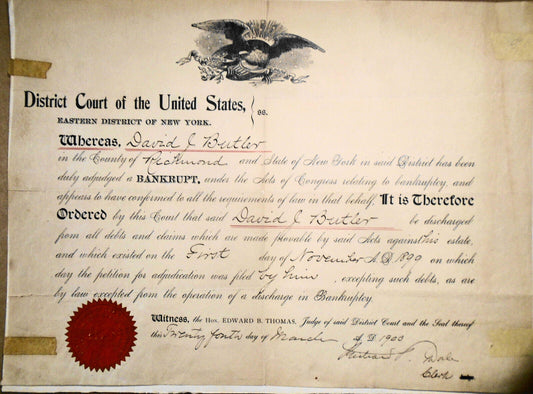 District Court of the United States, } ss.
EASTERN DISTRICT OF NEW YORK.
Whereas, David J. Butler
in the County of Richmond and State of New York in said District has been
duly adjudged a BANKRUPT, under the Acts of Congress relating to bankruptcy, and
appears to have conformed to all the requirements of law in that behalf, It is Therefore
Ordered by this Court that said David J. Butler be discharged
from all debts and claims which are made provable by said Acts against his estate,
and which existed on the First day of November A.D. 1899 on which
day the petition for adjudication was filed by him, excepting such debts, as are
by law excepted from the operation of a discharge in Bankruptcy.
Witness, the Hon. EDWARD B. THOMAS, Judge of said District Court and the Seal thereof
this Twenty fourth day of March A.D. 1900
Clerk